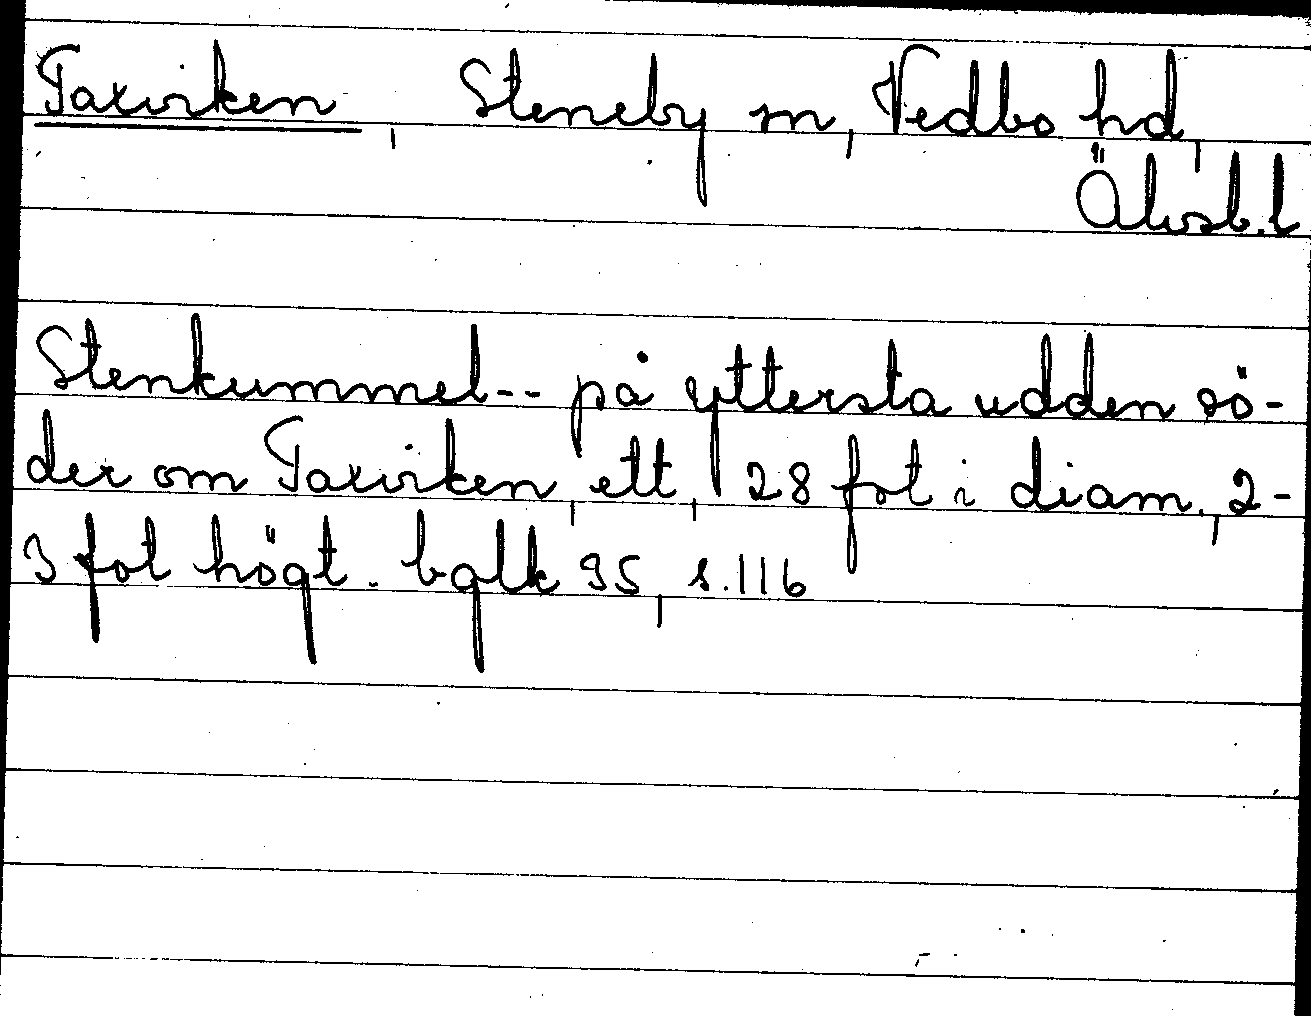 Taxviken, Steneby sn, Vedbo hd,
Älvsb.l
Stenkummel-- på yttersta udden sö-
der om Taxviken, ett, 28 fot i diam., 2-
3 fot högt. bglk 95, s.116